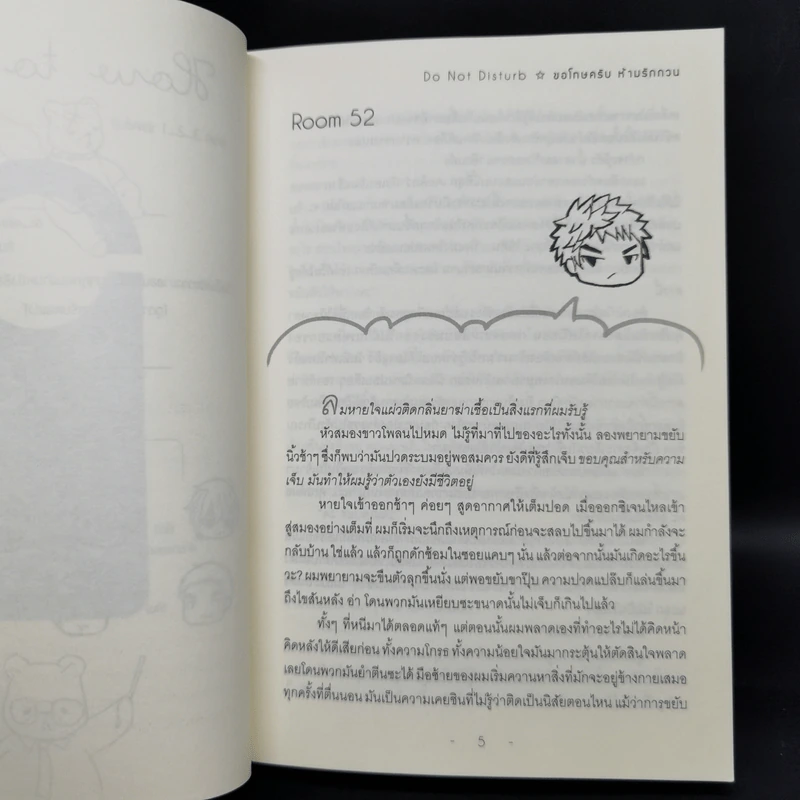 How to
Do Not Disturb ☆ ขอโทษครับ ห้ามรักกวน
Room 52
ลมหายใจแผ่วติดกลิ่นยาฆ่าเชื้อเป็นสิ่งแรกที่ผมรับรู้
หัวสมองขาวโพลนไปหมด ไม่รู้ที่มาที่ไปของอะไรทั้งนั้น ลองพยายามขยับ
นิ้วช้าๆ ซึ่งก็พบว่ามันปวดระบมอยู่พอสมควร ยังดีที่รู้สึกเจ็บ ขอบคุณสำหรับความ
เจ็บ มันทำให้ผมรู้ว่าตัวเองยังมีชีวิตอยู่
หายใจเข้าออกช้าๆ ค่อยๆ สูดอากาศให้เต็มปอด เมื่อออกซิเจนไหลเข้า
สู่สมองอย่างเต็มที่ ผมก็เริ่มจะนึกถึงเหตุการณ์ก่อนจะสลบไปขึ้นมาได้ ผมกำลังจะ
กลับบ้าน ใช่แล้ว แล้วก็ถูกดักซ้อมในซอยแคบๆ นั่น แล้วต่อจากนั้นมันเกิดอะไรขึ้น
วะ? ผมพยายามจะขืนตัวลุกขึ้นนั่ง แต่พอขยับขาปุ๊บ ความปวดแปล๊บก็แล่นขึ้นมา
ถึงไขสันหลัง อ่า โดนพวกมันเหยียบซะขนาดนั้นไม่เจ็บก็เกินไปแล้ว
ทั้งๆ ที่หนีมาได้ตลอดแท้ๆ แต่ตอนนั้นผมพลาดเองที่ทำอะไรไม่ได้คิดหน้า
คิดหลังให้ดีเสียก่อน ทั้งความโกรธ ทั้งความน้อยใจมันมากระตุ้นให้ตัดสินใจพลาด
เลยโดนพวกมันยำตีนซะได้ มือซ้ายของผมเริ่มควานหาสิ่งที่มักจะอยู่ข้างกายเสมอ
ทุกครั้งที่ตื่นนอน มันเป็นความเคยชินที่ไม่รู้ว่าติดเป็นนิสัยตอนไหน แม้ว่าการขยับ
- 5 -